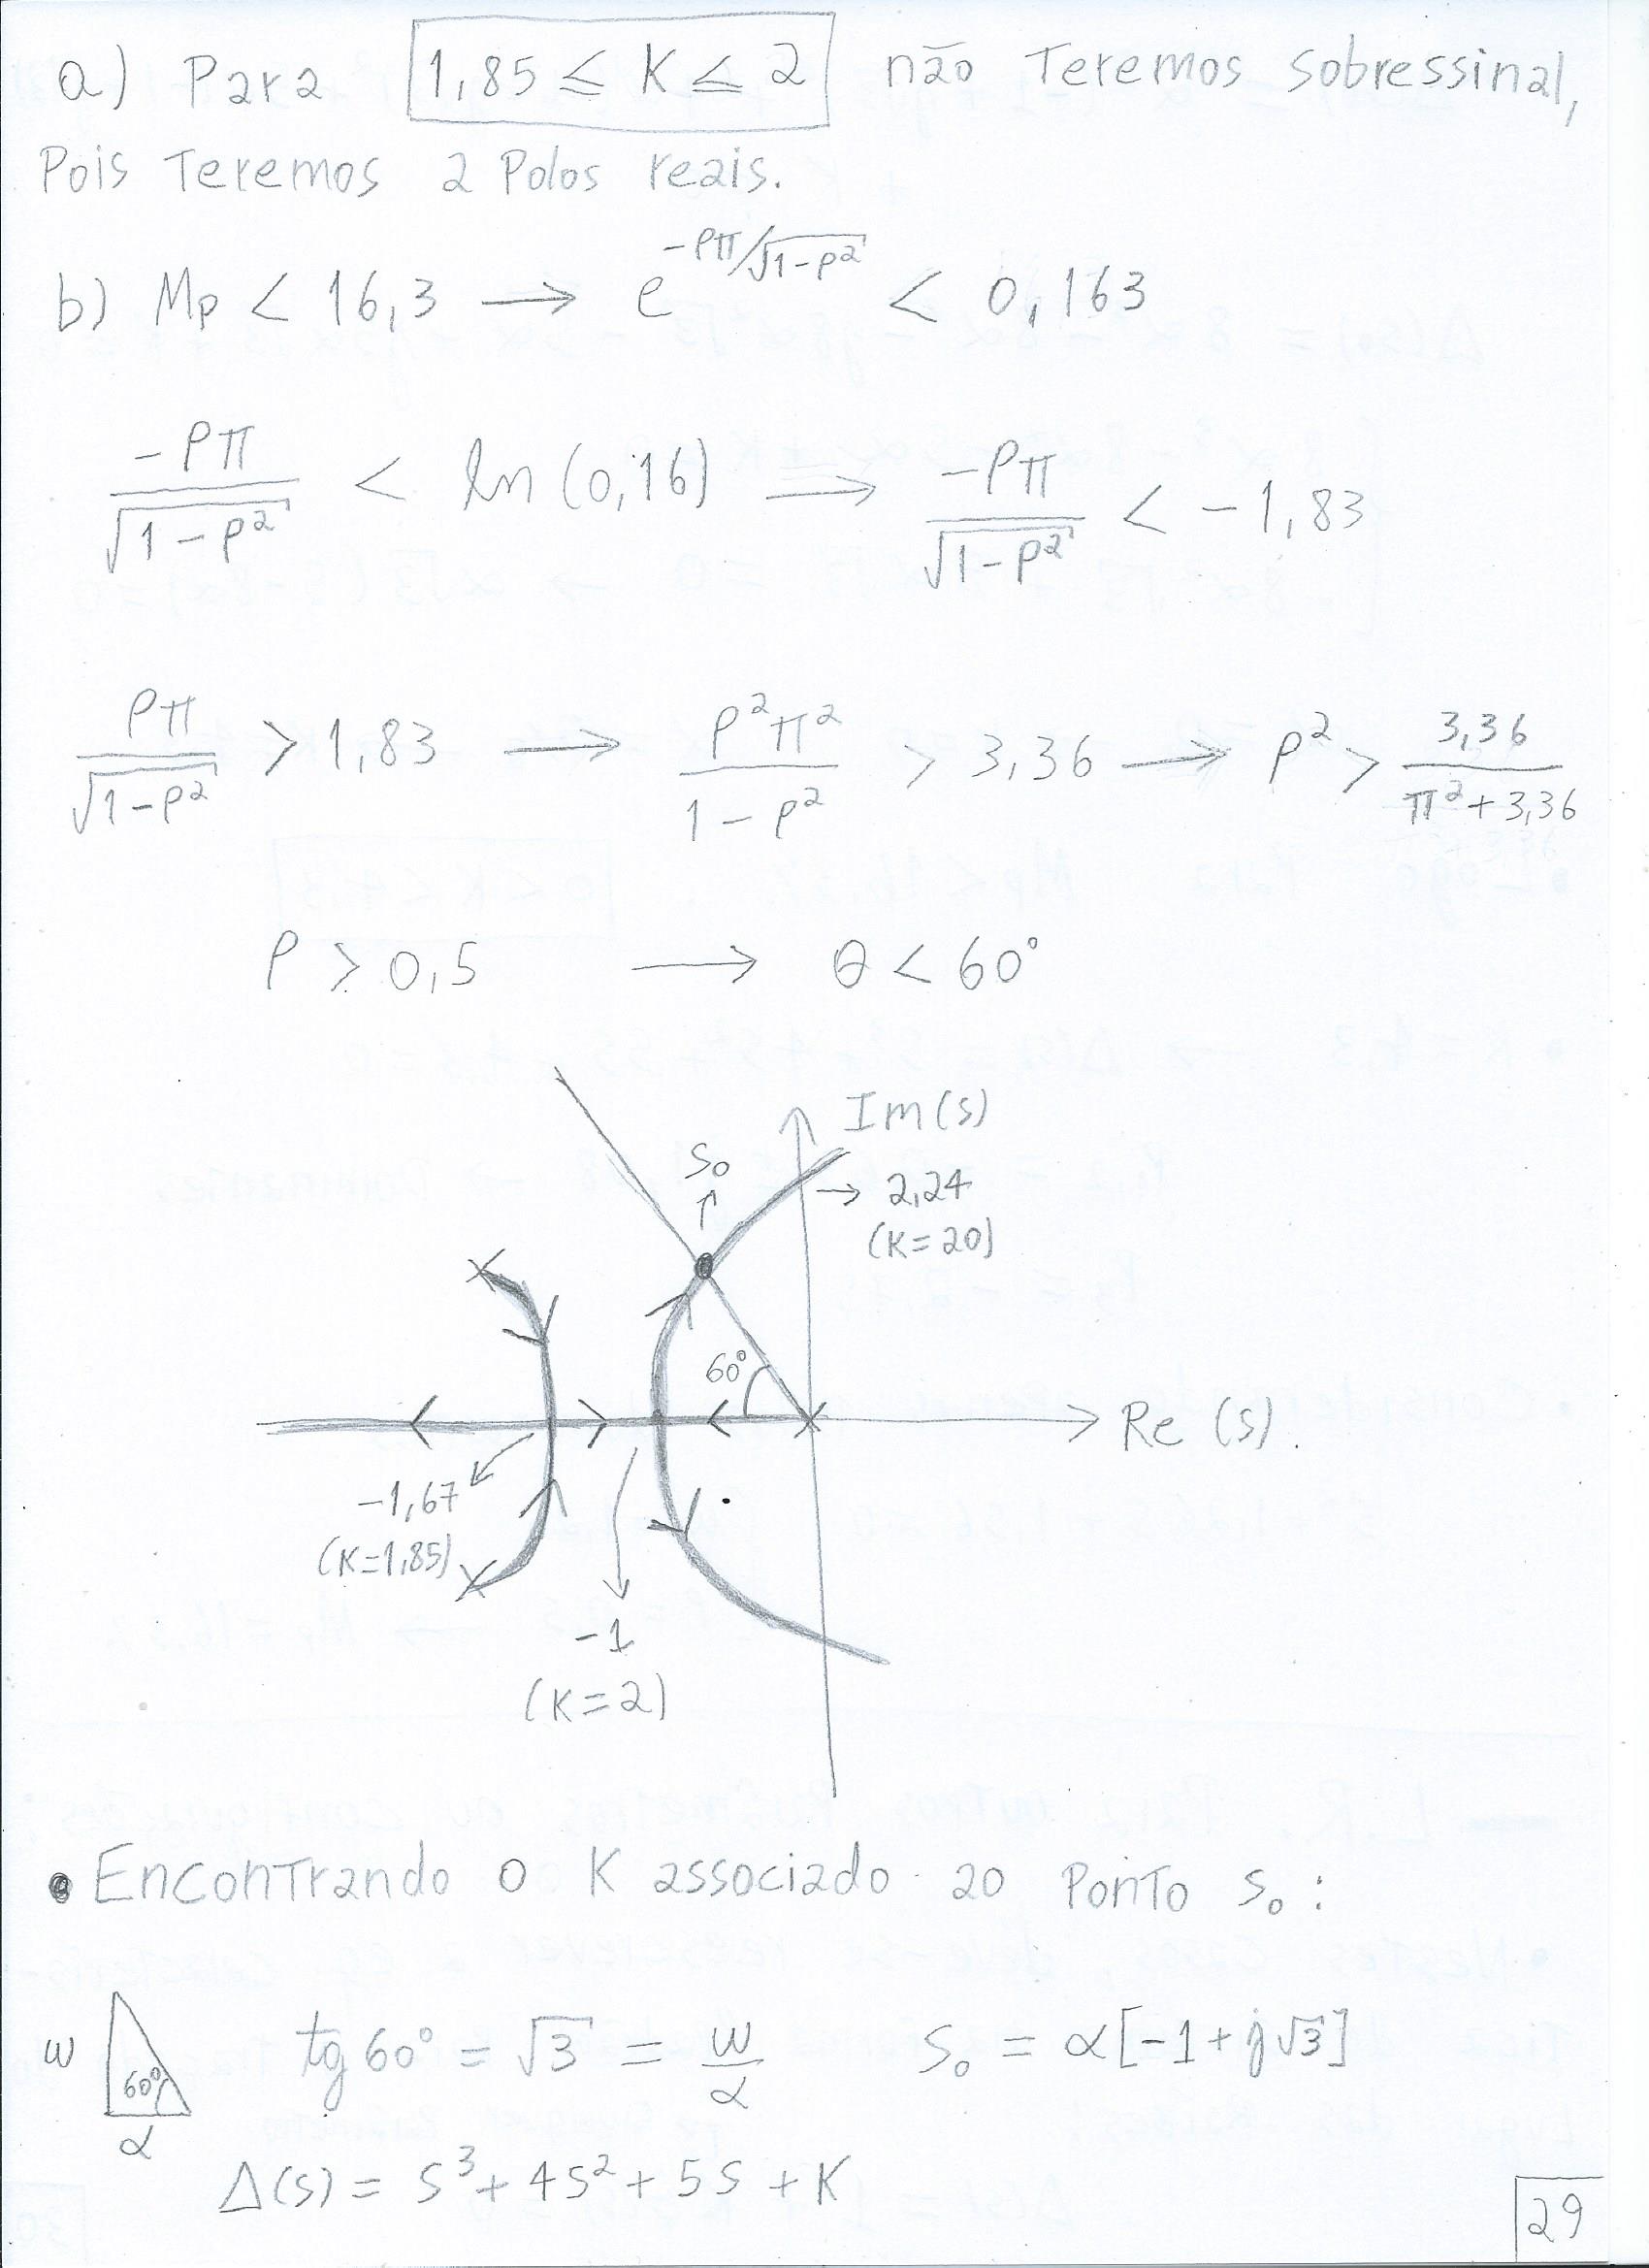 a) Para 1,85 ≤ K ≤ 2 não Teremos sobressinal,
Pois Teremos 2 Polos reais.
b) Mp < 16,3 → e^(-ρπ/√(1-ρ²)) < 0,163
-ρπ/√(1-ρ²) < ln (0,16) ⇒ -ρπ/√(1-ρ²) < -1,83
ρπ/√(1-ρ²) > 1,83 → ρ²π²/(1-ρ²) > 3,36 → ρ² > 3,36/(π²+3,36)
ρ > 0,5 → θ < 60°
Im(s)
s₀
→ 2,24
(K=20)
60°
Re (s).
-1,67
(K=1,85)
-1
(K=2)
• Encontrando o K associado ao Ponto s₀ :
ω 60° α tg 60° = √3 = ω/α s₀ = α[-1+j√3]
Δ(s) = s³ + 4s² + 5s + K
29